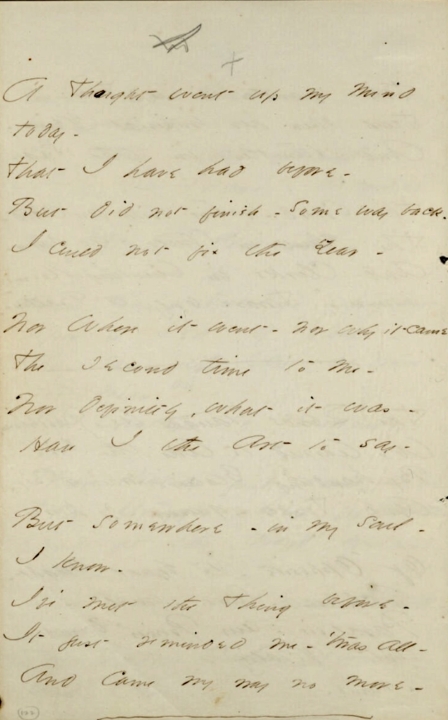 A Thought went up my mind
today -
That I have had before -
But did not finish - some way back -
I could not fix the Year -
Nor Where it went - nor why it came
The second time to me -
Nor definitely, what it was -
Have I the Art to say -
But somewhere - in my soul -
I know -
I've met the Thing before -
It just reminded me - 'twas all -
And came my way no more -